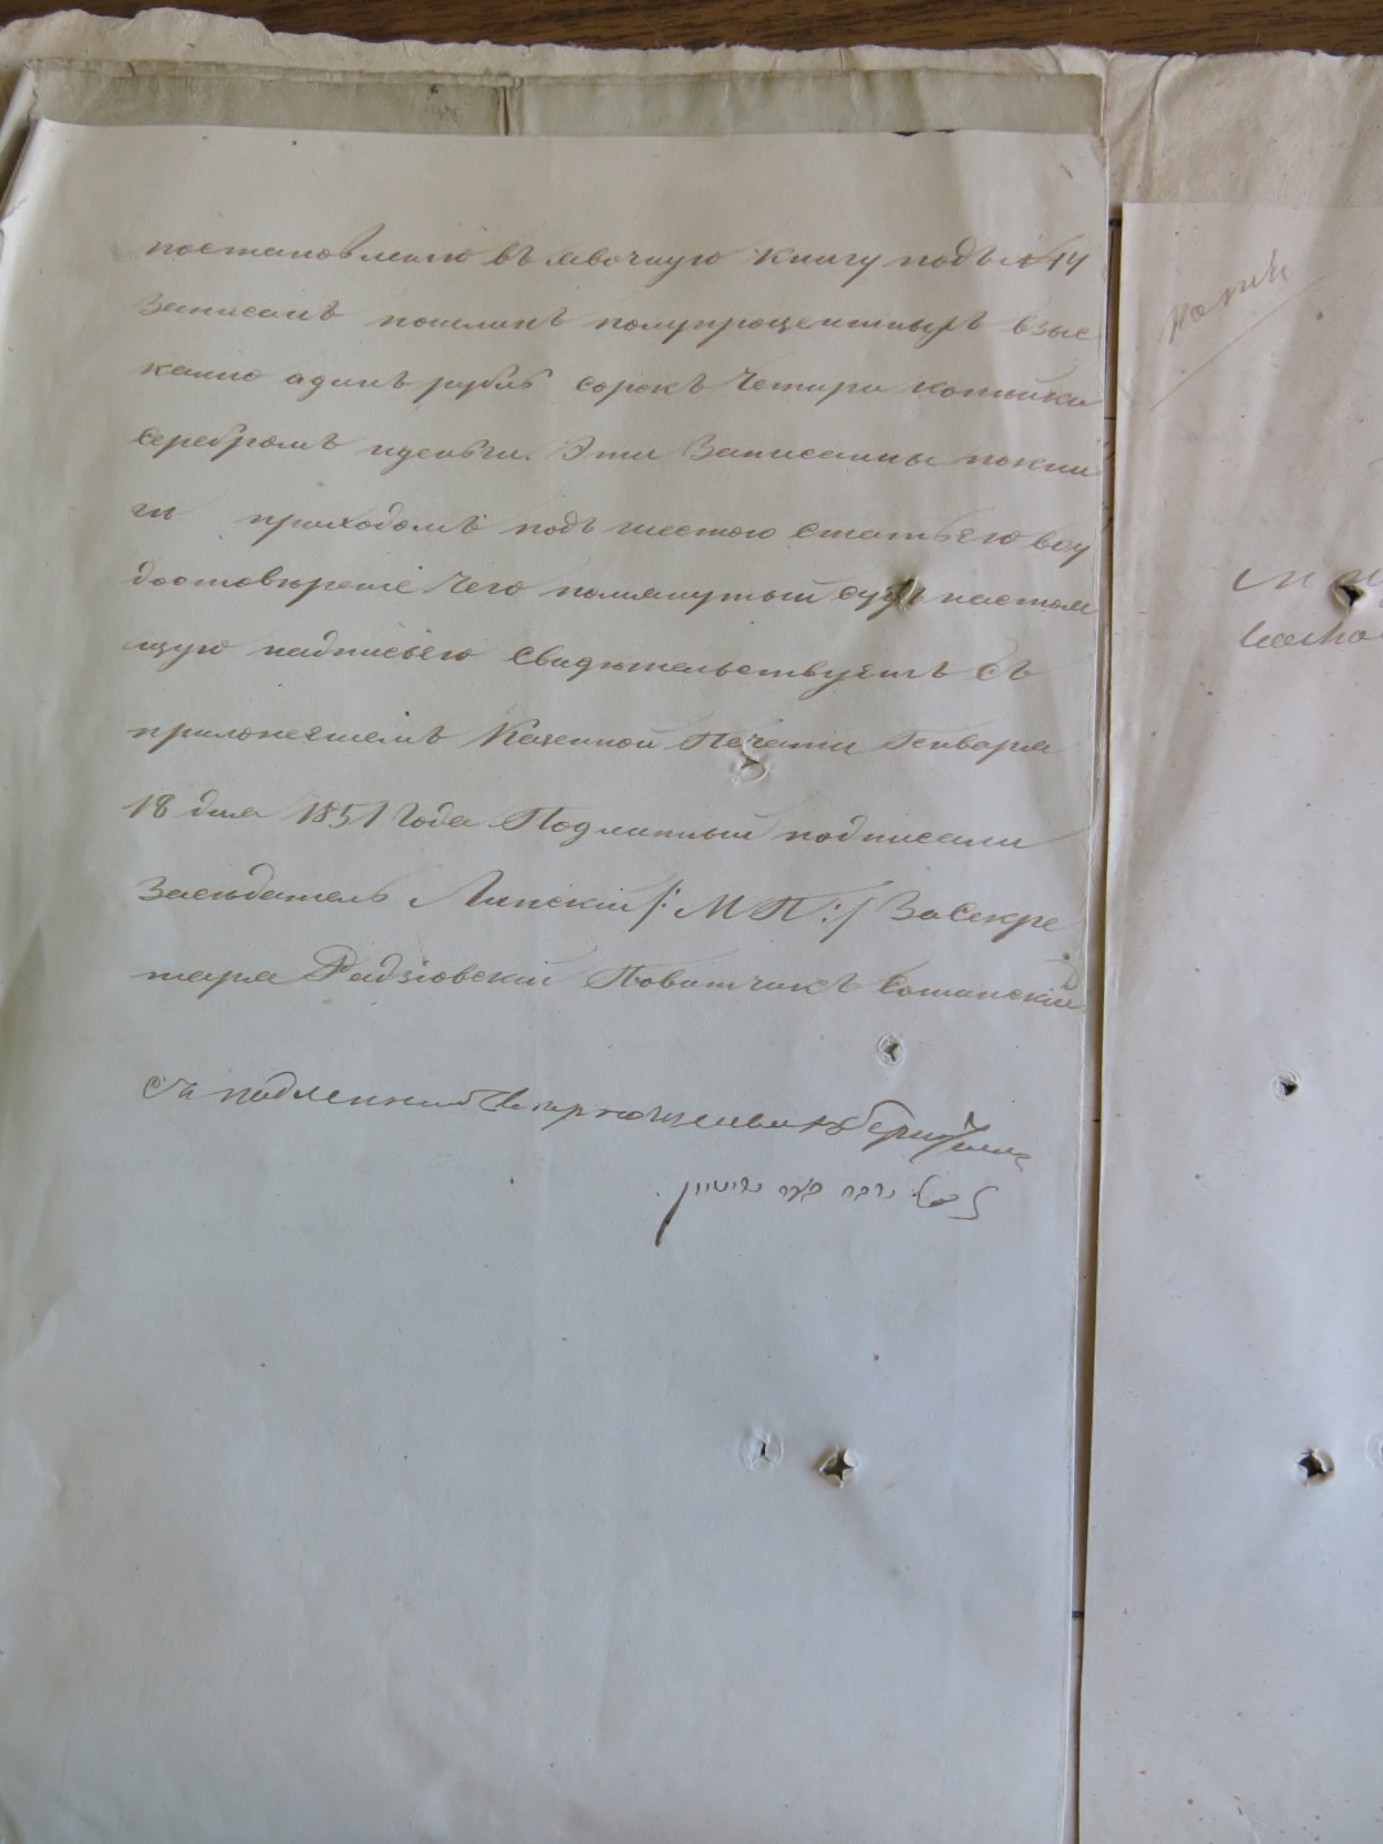 постановленію въ явочную книгу подъ № 14
записанъ пошлинъ полупроцентныхъ взыс
канно адинъ рубль сорокъ четыри копѣйки
серебромъ иденьги. Эти записанны покни
ги приходомъ подъ шестою статьею воу
достовѣреніе чего помянутый судъ настоя
щую надписью свидѣтельствуетъ съ
приложеніемъ Казенной Печати Генваря
18 дня 1851 года Подлинный подписали
Засѣдатель Липскій /: М П :/ За Секре
таря Радзіовскій Повытчикъ Сошинскій
Съ подленной
копія